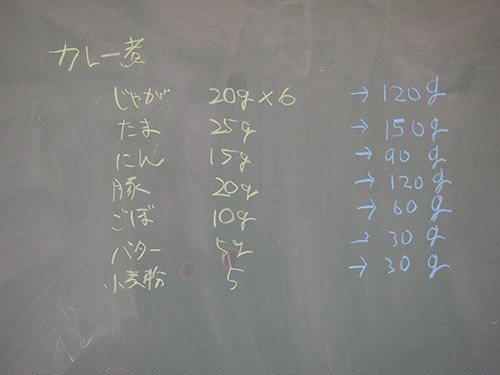 カレー煮
じゃが 20g×6 → 120g
たま 25g → 150g
にん 15g → 90g
豚 20g → 120g
ごぼ 10g → 60g
バター 5g → 30g
小麦粉 5 → 30g